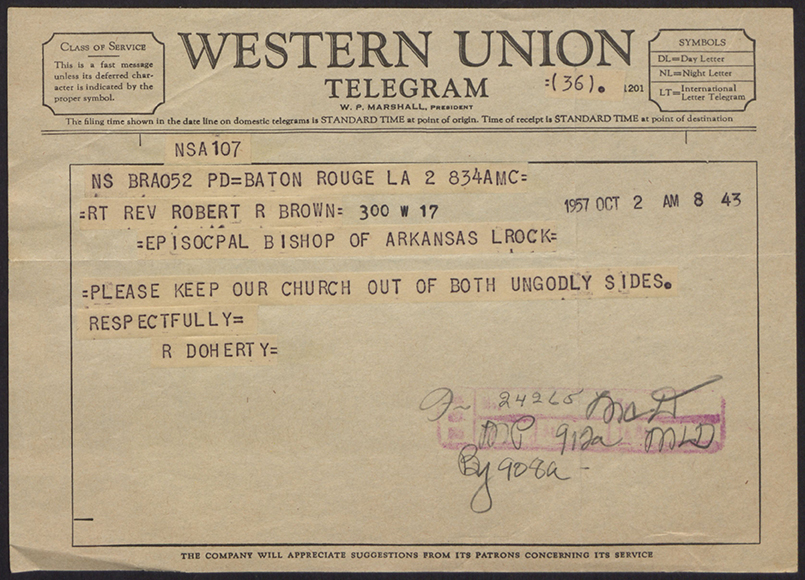 CLASS OF SERVICE
This is a fast message
unless its deferred char-
acter is indicated by the
proper symbol.
WESTERN UNION
TELEGRAM
W. P. MARSHALL, PRESIDENT
=(36).
1201
SYMBOLS
DL=Day Letter
NL=Night Letter
LT=International
Letter Telegram
The filing time shown in the date line on domestic telegrams is STANDARD TIME at point of origin. Time of receipt is STANDARD TIME at point of destination
NSA107
NS BRA052 PD=BATON ROUGE LA 2 834AMC=
=RT REV ROBERT R BROWN= 300 W 17
1957 OCT 2 AM 8 43
=EPISOCPAL BISHOP OF ARKANSAS LROCK=
=PLEASE KEEP OUR CHURCH OUT OF BOTH UNGODLY SIDES.
RESPECTFULLY=
R DOHERTY=
24265
912a MLD
By 908a -
THE COMPANY WILL APPRECIATE SUGGESTIONS FROM ITS PATRONS CONCERNING ITS SERVICE